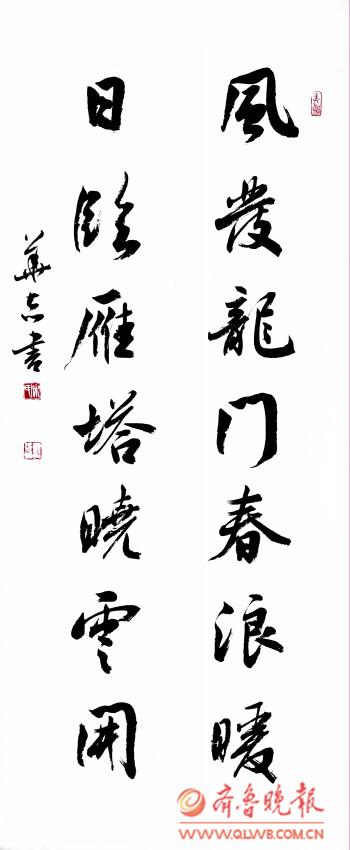 風發龍门春浪暖
日臨雁塔曉雲開
華志書
齐鲁晚报
WWW.QLWB.COM.CN